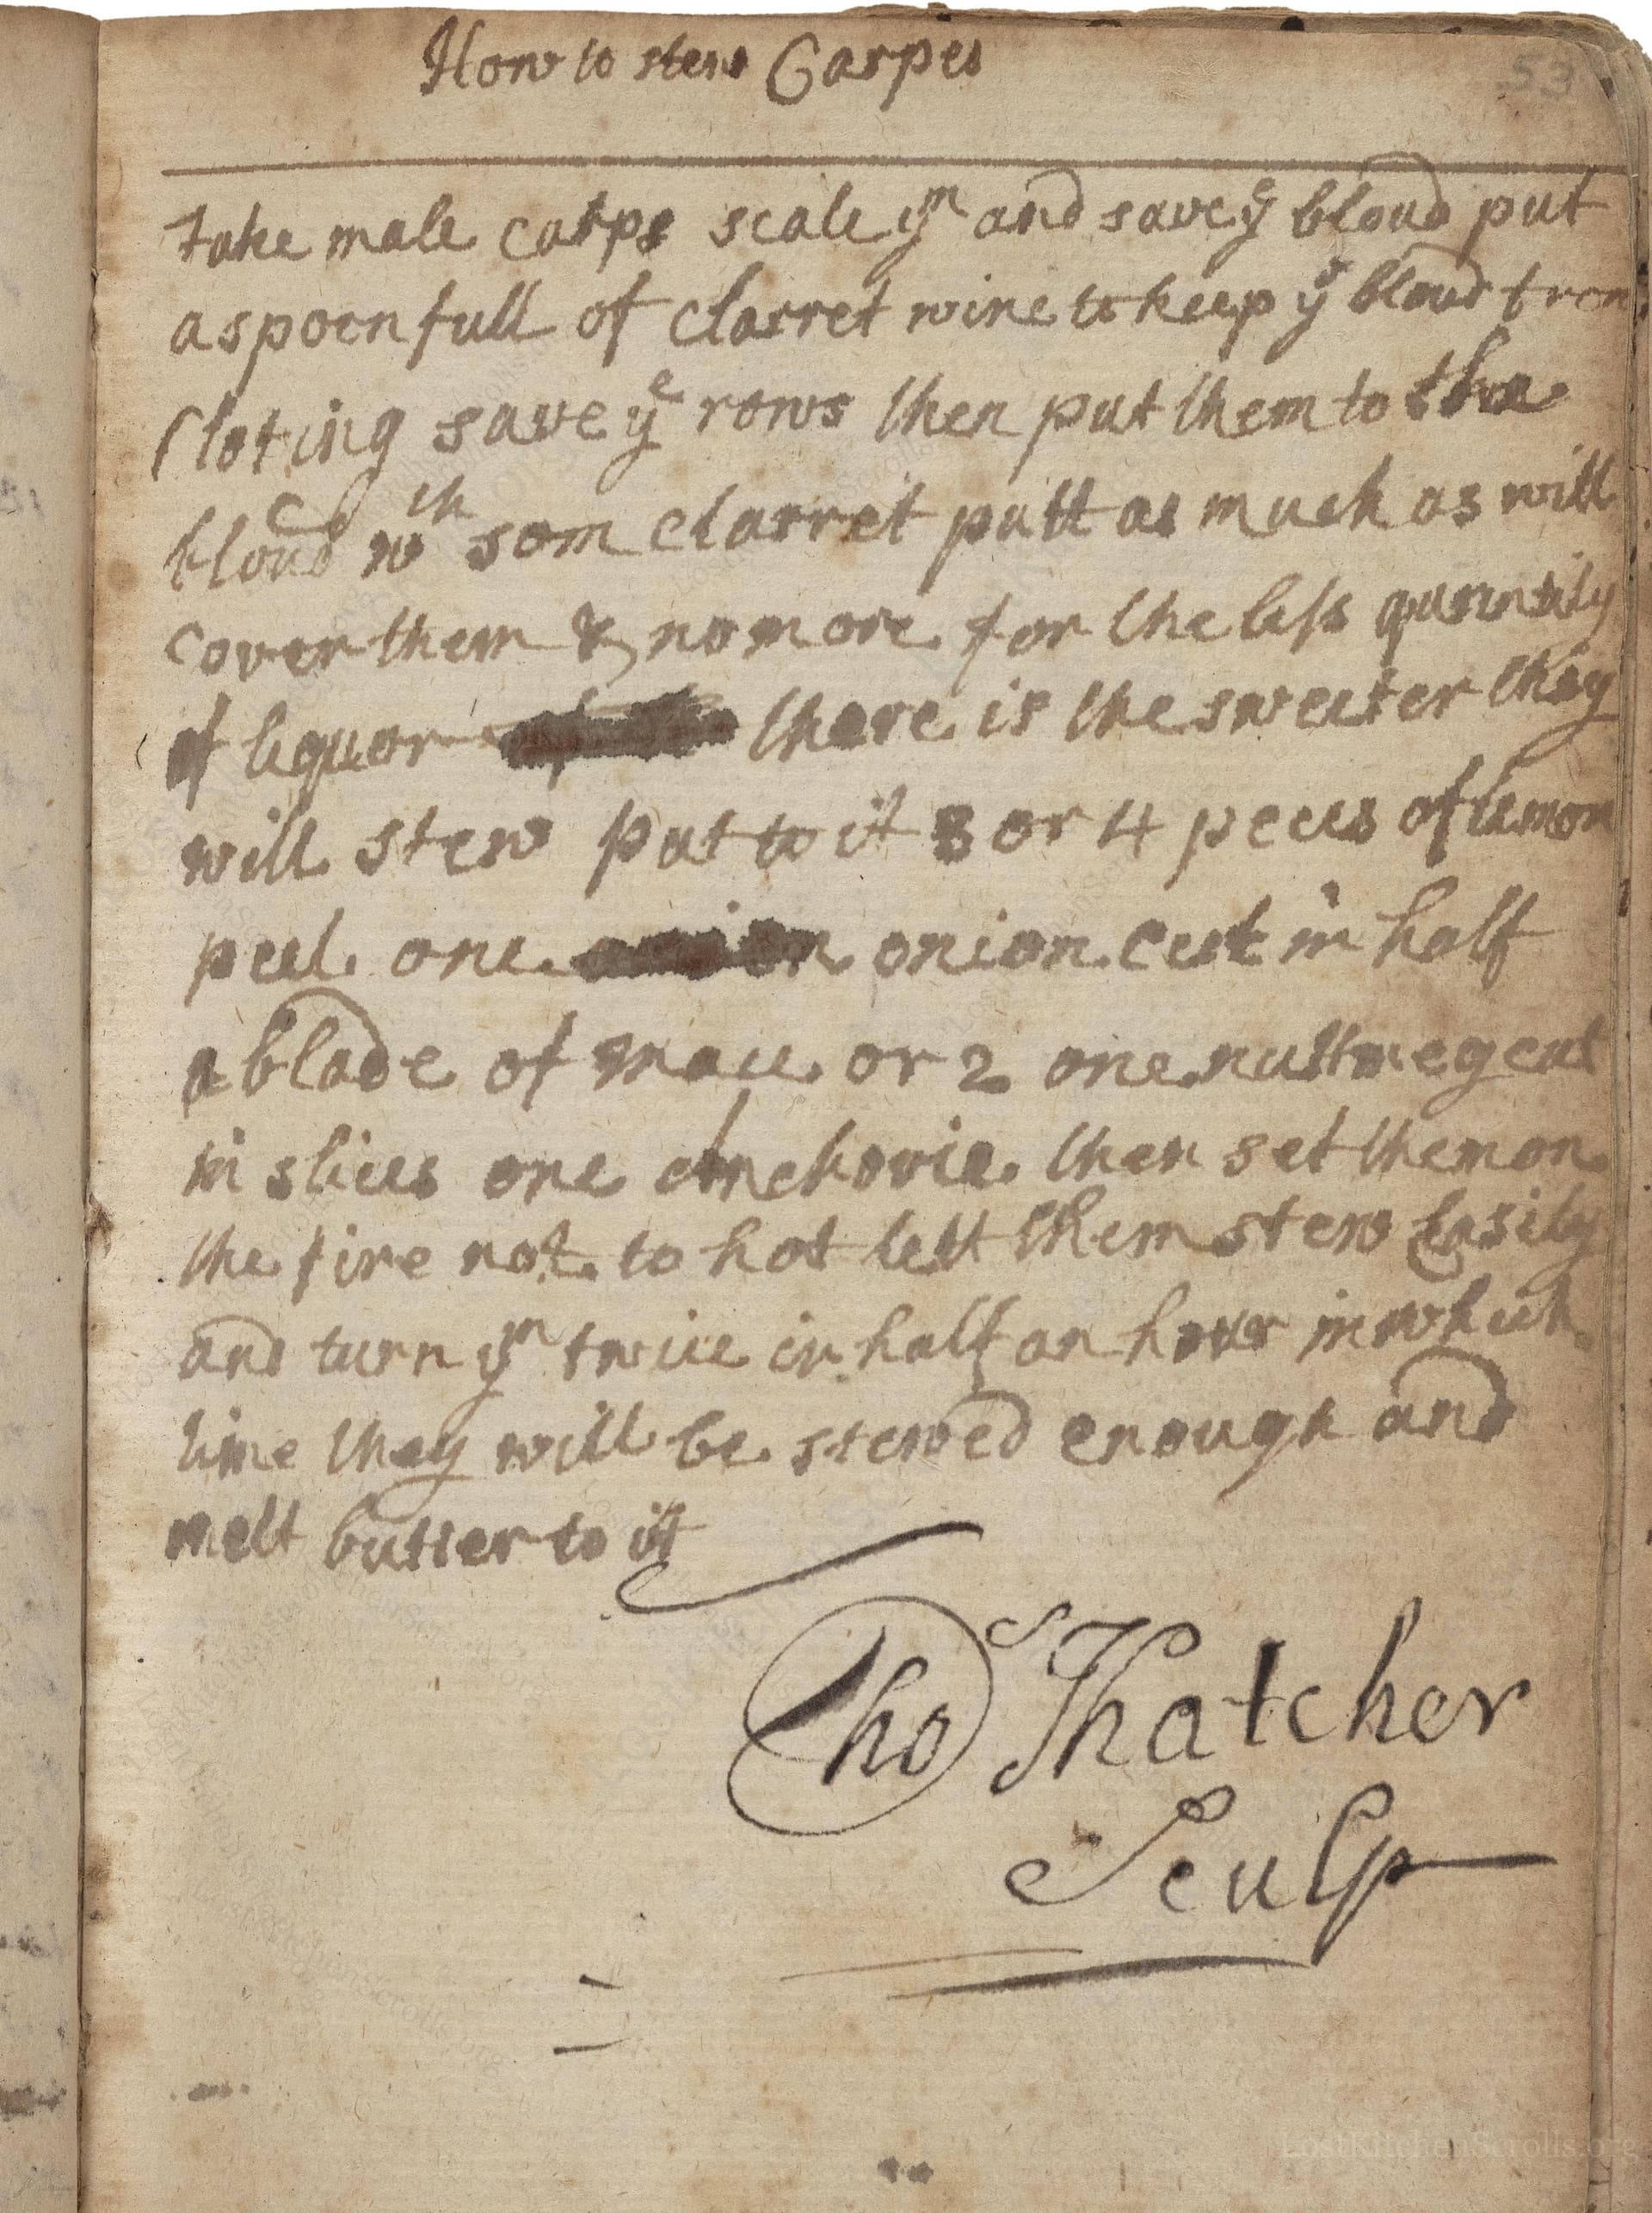 How to stew Carpes
53
take male carps scale yᵐ and save yᵉ bloud put
a spoonfull of clarret wine to keep yᵉ bloud from
Cloting save yᵉ rows then put them to the
bloud wᵗʰ som clarret putt as much as will
cover them & no more for the less quantity
of liquor there is the sweeter they
will stew put to it 3 or 4 peces of lemon
peel one onion onion cut in half
a blade of mace or 2 one nuttmeg cut
in slices one Anchovie then set them on
the fire not to hot lett them stew Easily
and turn yᵐ twice in half an hour in which
time they will be stewed enough and
melt butter to itt
Tho Thatcher
Sculp
LostKitchenScrolls.org